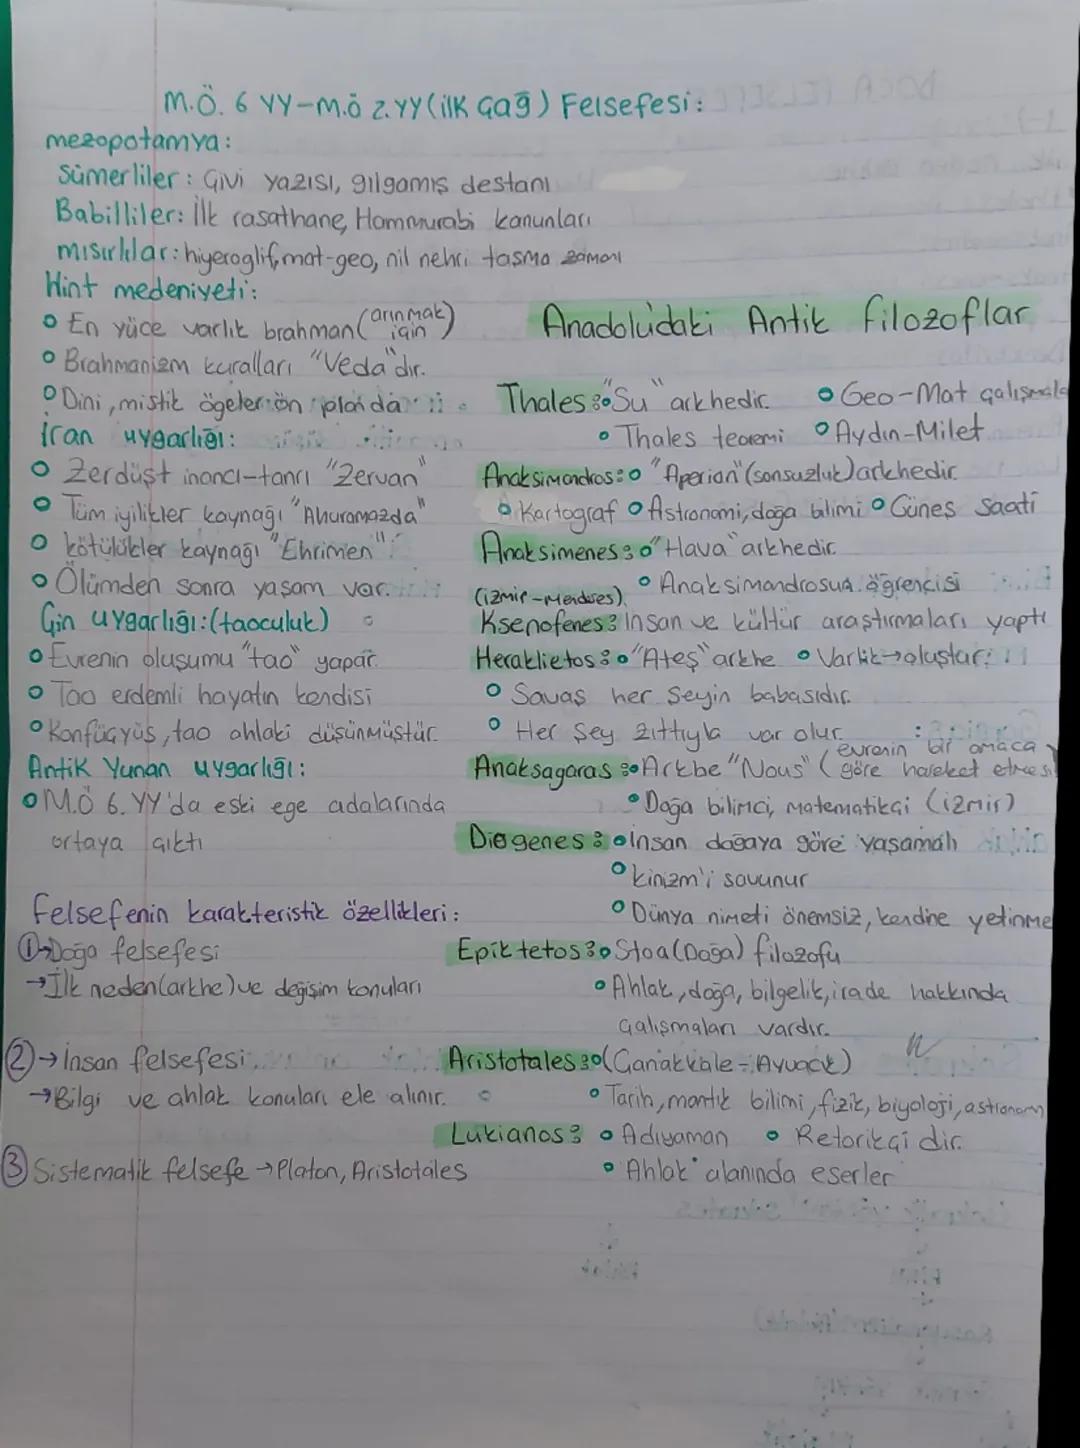 M.Ö. 6 YY-M.Ö 2.YY (ilk Çağ) Felsefesi:
mezopotamya:
Sümerliler: Çivi yazısı, gılgamış destanı
Babilliler: İlk rasathane, Hammurabi kanunları
mısırlılar: hiyeroglif, mat-geo, nil nehri taşma zamanı
Hint medeniyeti:
En yüce varlık brahman (arınmak için)
Brahmanizm kuralları "Veda"dır.
Dini, mistik ögeler ön planda
İran uygarlığı:
Zerdüşt inancı-tanrı "Zervan"
Tüm iyilikler kaynağı "Ahuramazda"
kötülükler kaynağı "Ehrimen"
Ölümden sonra yaşam var.
Çin uygarlığı: (taoculuk)
Evrenin oluşumu "tao" yapar.
Tao erdemli hayatın kendisi
Konfüçyüs, tao ahlaki düşünmüştür.
Antik Yunan uygarlığı:
M.Ö 6. YY'da eski ege adalarında
ortaya çıktı
Felsefenin karakteristik özellikleri:
1→Doğa felsefesi
→İlk neden(arkhe) ve değişim konuları
2→insan felsefesi
→Bilgi ve ahlak konuları ele alınır.
3 Sistematik felsefe →Platon, Aristotales
Anadolu'daki Antik filozoflar
Thales: "Su" arkhedir. Geo-Mat çalışmala
Thales teoremi Aydın-Milet
Anaksimandros: "Aperion" (sonsuzluk) arkhedir.
Kartograf Astronomi, doğa bilimi Güneş Saati
Anaksimenes: "Hava" arkhedir.
Anaksimandrosun öğrencisi
(izmir-Menderes)
Ksenofenes: İnsan ve kültür araştırmaları yaptı
Heraklietos: "Ateş" arkhe Varlık→oluştur.
Savaş her şeyin babasıdır.
Her şey zıttıyla var olur.
Anaksagaras: Arkhe "Nous" (evrenin bir amaca göre hareket etmesi
Doğa bilimci, matematikçi (izmir)
Diogenes: insan doğaya göre yaşamalı
kinizm'i savunur
Dünya nimeti önemsiz, kendine yetinme
Epiktetos: Stoa(Doğa) filozofu
Ahlak, doğa, bilgelik, irade hakkında
çalışmaları vardır.
Aristotales: (Çanakkale-Ayvacık)
Tarih, mantık bilimi, fizik, biyoloji, astronom
Lukianos: Adıyaman Retorikçi dir.
Ahlak alanında eserler